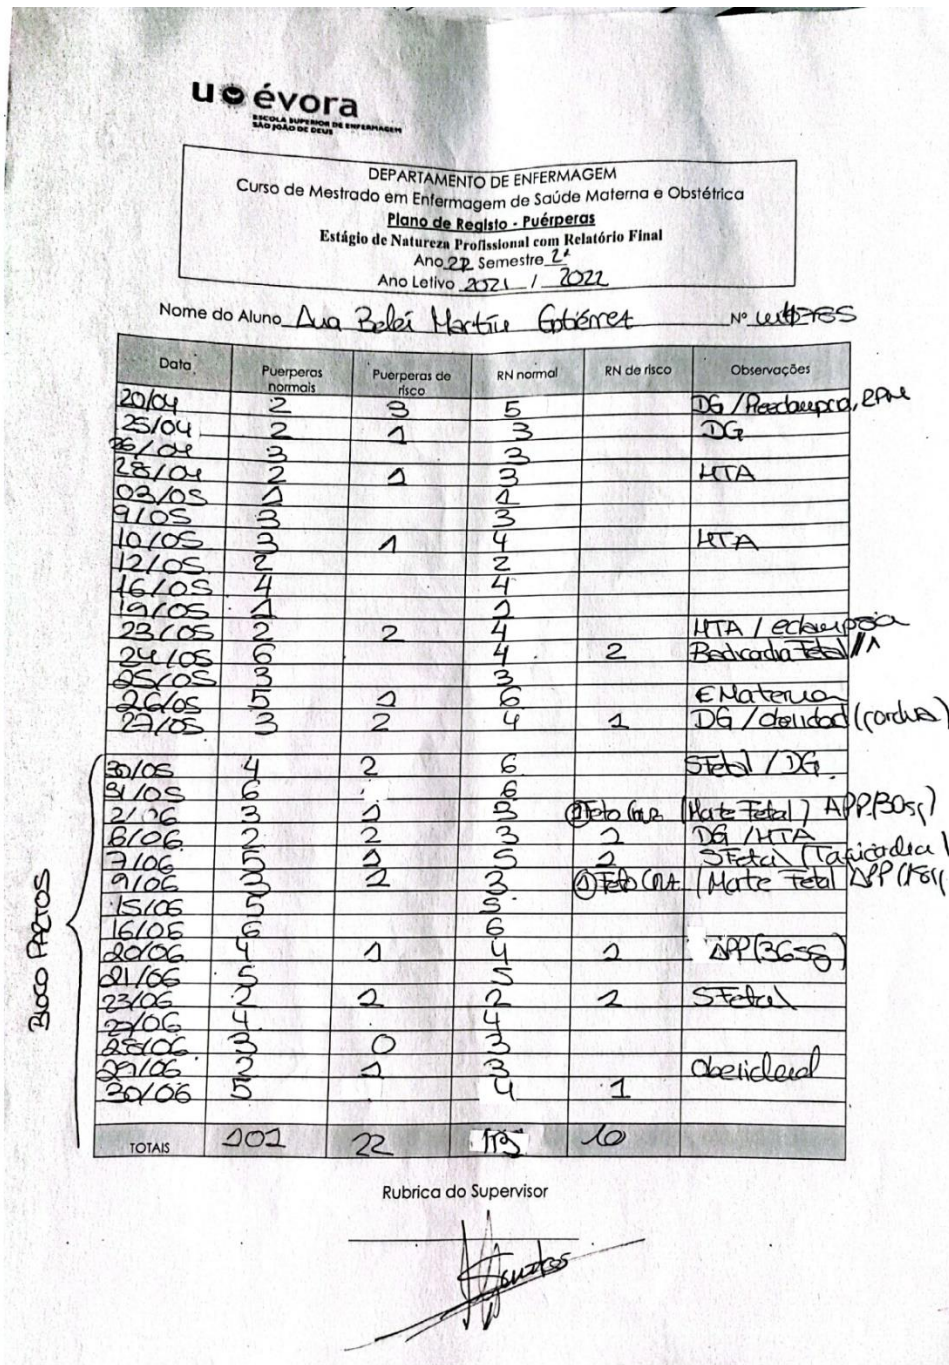 u évora
ESCOLA SUPERIOR DE ENFERMAGEM
SÃO JOÃO DE DEUS
DEPARTAMENTO DE ENFERMAGEM
Curso de Mestrado em Enfermagem de Saúde Materna e Obstétrica
Plano de Registo - Puérperas
Estágio de Natureza Profissional com Relatório Final
Ano 2º Semestre 2º
Ano Letivo 2021 / 2022
Nome do Aluno Ana Belén Martín Gutiérrez Nº
Data Puerperas normais Puerperas de risco RN normal RN de risco Observações
20/04 2 3 5 DG / Preeclampsia, RPM
25/04 2 1 3 DG
26/04 3 3
28/04 2 1 3 HTA
03/05 1 1
9/05 3 3
10/05 3 1 4 HTA
12/05 2 2
16/05 4 4
19/05 1 1
23/05 2 2 4 HTA / eclampsia
24/05 6 4 2 Fetal
25/05 3 3
26/05 5 1 6 E Materna
27/05 3 2 4 1 DG /
BLOCO PARTOS
30/05 4 2 6 SFetal / DG
31/05 6 6
2/06 3 1 3 Feto (Morte Fetal) APP (30sg)
6/06 2 2 3 1 DG / HTA
7/06 5 1 5 1 SFetal (Taquicardia)
9/06 3 1 3 Feto (Morte Fetal APP
15/06 5 5
16/06 6 6
20/06 4 1 4 1 APP (36sg)
21/06 5 5
23/06 2 1 2 1 SFetal
27/06 4 4
28/06 3 0 3
29/06 2 1 3
30/06 5 4 1
TOTAIS 101 22 113 10
Rubrica do Supervisor